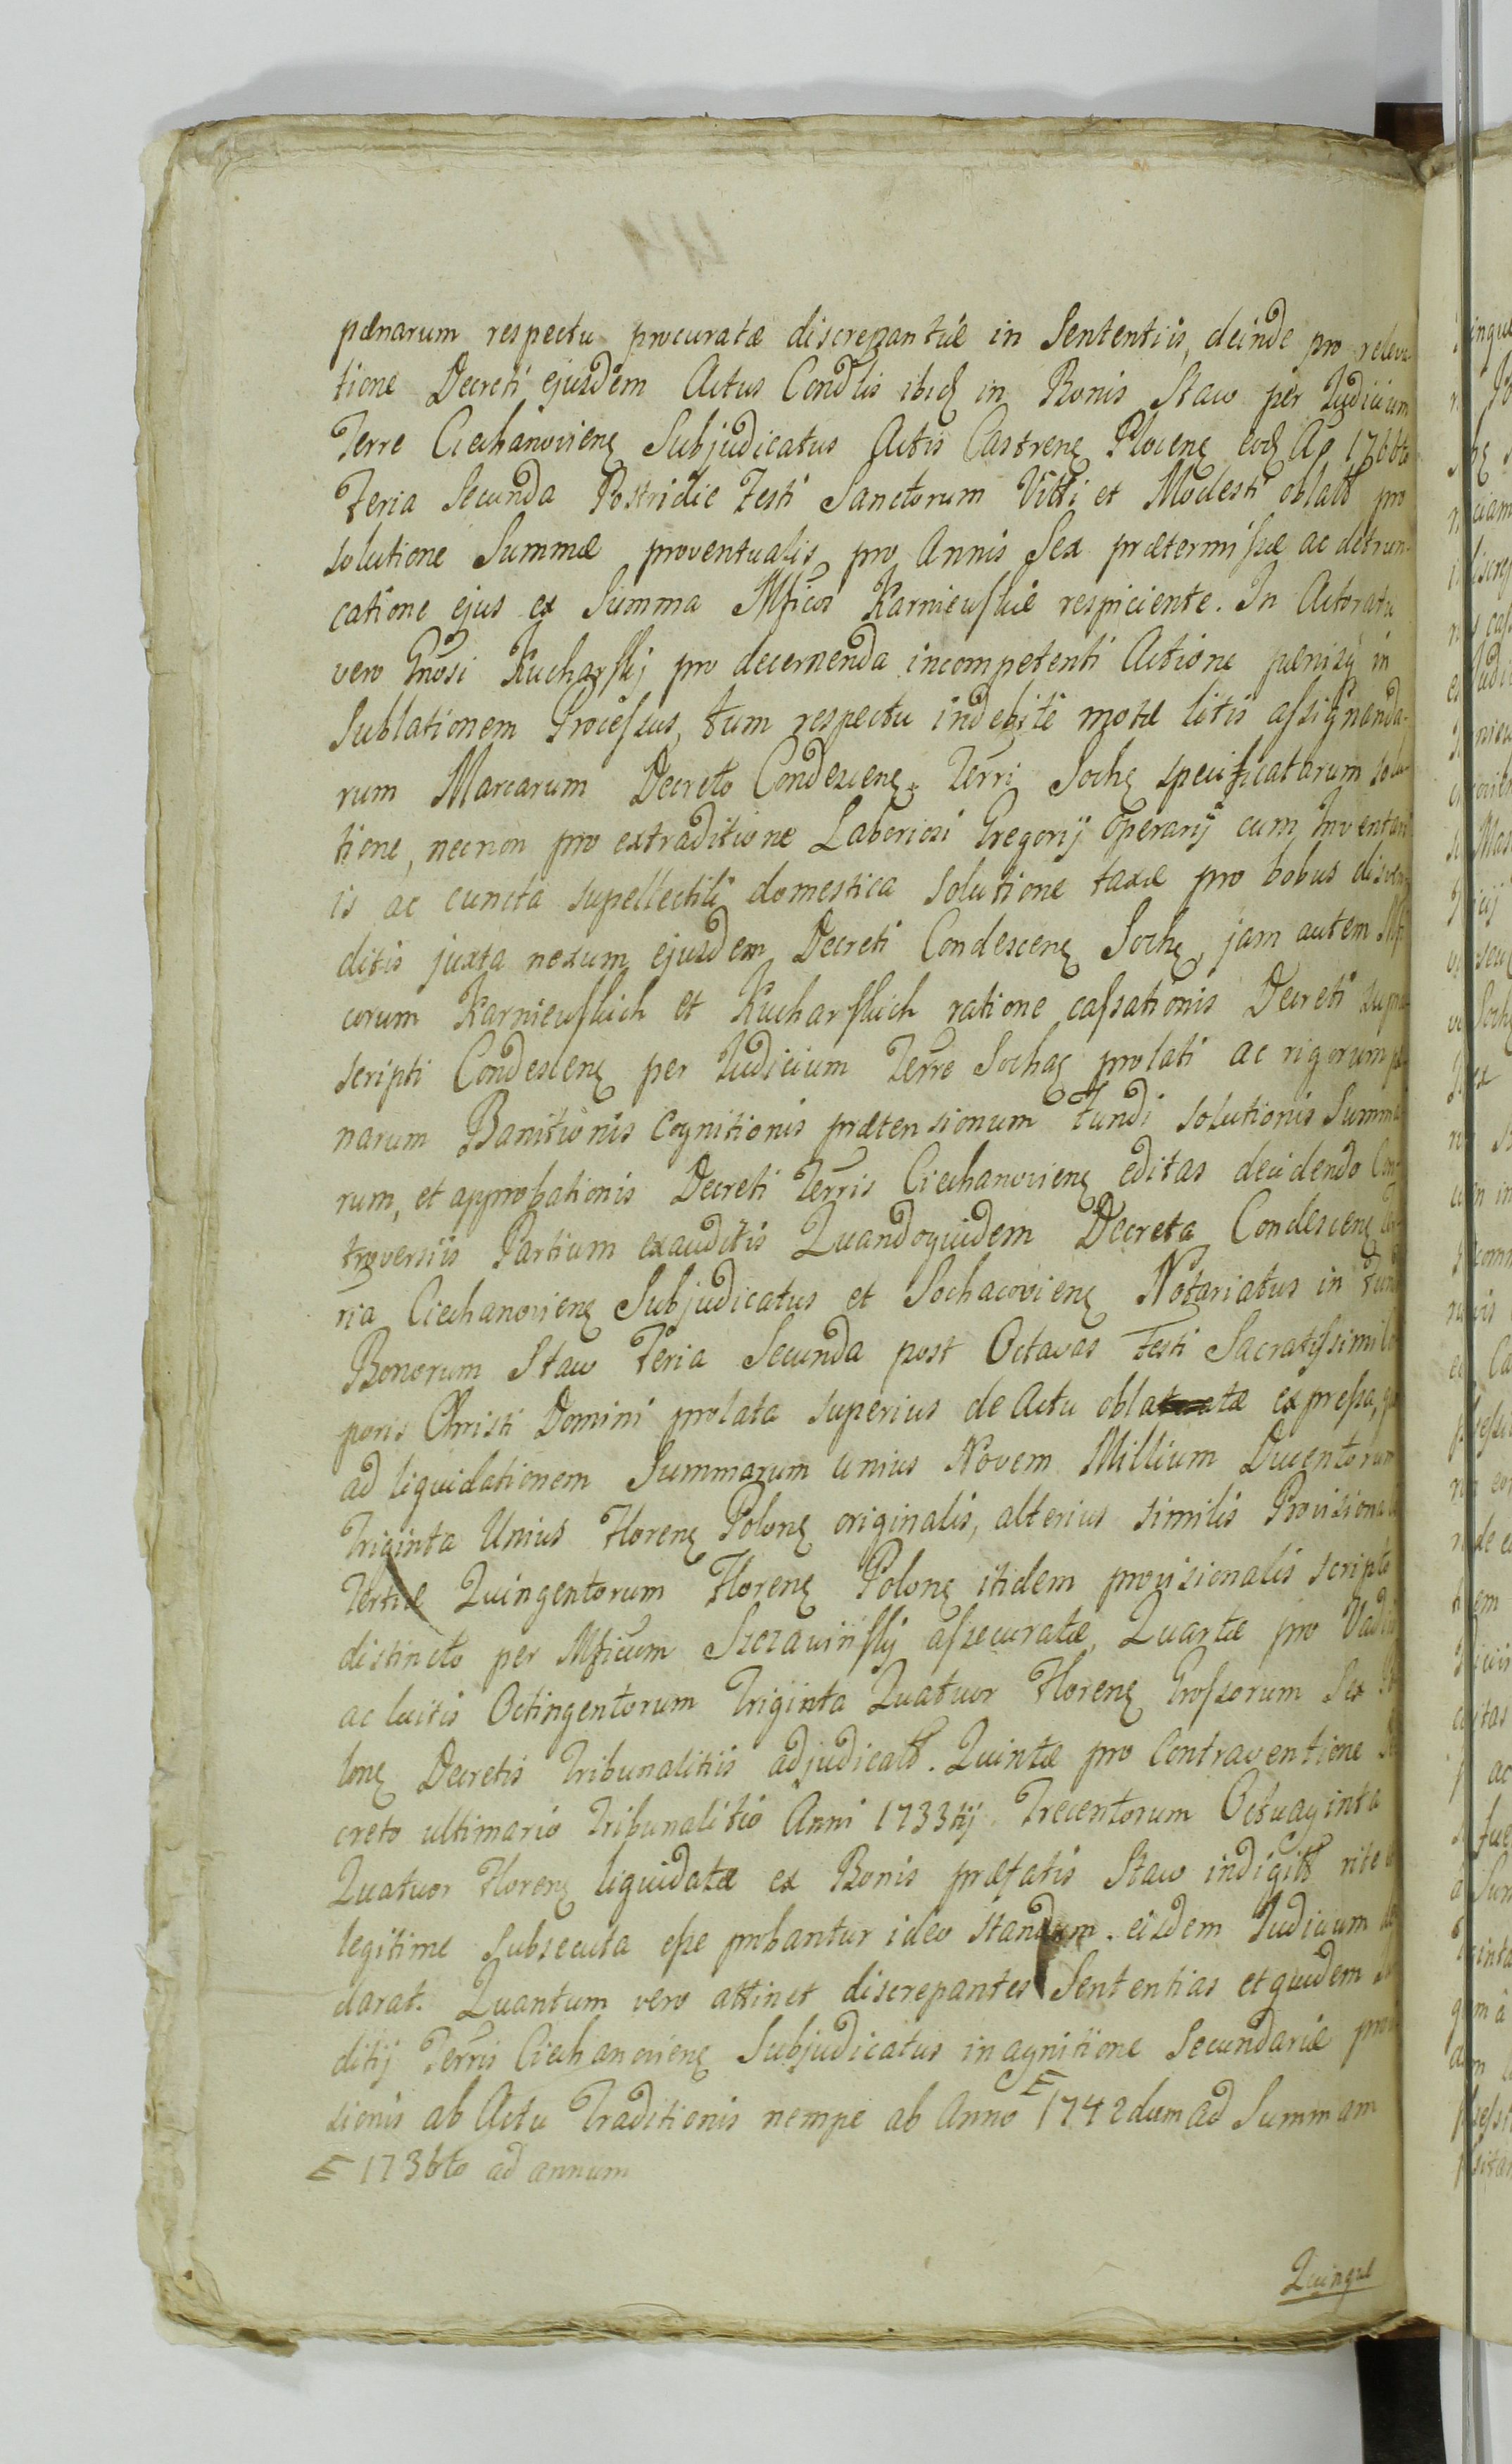 pænarum respectu procuratæ discrepantiæ in Sententiis, deinde pro releva-
tione Decreti ejusdem Actus Condlis ibid in Bonis Staw per Judicium
Terre Ciechanoviens Subjudicatus Actis Castrens Plocens eod Ao 1766to
Feria Secunda Postridie Festi Sanctorum Viti et Modesti oblatt pro
solutione Summæ proventualis pro Annis Sex prætermissæ ac detrun-
catione ejus ex Summa Mficos Karniewskie respiciente. In Actoratu
vero Gnosi Kucharskj pro decernenda incompetenti Actione pænisq in
Sublationem Processus, tum respectu indebite motæ litis assignanda-
rum Marcarum Decreto Condescens. Terri Sochs specificatarum solu-
tione, necnon pro extraditione Laboriosi Gregorij Operarij cum Inventari
is ac cuncta supellectili domestica solutione taxæ pro bobus disven-
ditis juxta nexum ejusdem Decreti Condescens Sochs, jam autem Mfi
corum Karniewskich et Kucharskich ratione cassationis Decreti supra
scripti Condescens per Judicium Terre Sochas prolati ac rigorum pæ
narum Banitionis cognitionis prætensionum Fundi solutionis Summa
rum, et approbationis Decreti Terris Ciechanoviens editas decidendo Con
troversiis Partium exauditis Quandoquidem Decreta Condescens Ter
ria Ciechanoviens Subjudicatus et Sochacoviens Notariatus in Fund
Bonorum Staw Feria Secunda post Octavas Festi Sacratissimi Cor
poris Christi Domini prolata superius de Actu oblatæ expressa, quo
ad liquidationem Summarum unius Novem Millium Ducentorum
Triginta Unius Florens Polons originalis, alterius similis Provisionalis
Tertiæ Quingentorum Florens Polons itidem provisionalis scripto
distincto per Mficum Szczawinskj assecuratæ, Quartæ pro Vadiis
ac luitis Octingentorum Triginta Quatuor Florens Grossorum Sex Po
lons Decretis Tribunalitiis adjudicatt. Quintæ pro Contraventione De
creto ultimario Tribunalitio Anni 1733tij Trecentorum Octuaginta
Quatuor Florens liquidatæ ex Bonis præfatis Staw indigitt rite et
legitime subsecuta esse probantur ideo standum eisdem Judicium de
darat. Quantum vero attinet discrepantes Sententias et quidem Ju
ditij Terris Ciechanoviens Subjudicatus in agnitione Secundariæ provi
sionis ab Actu Traditionis nempe ab Anno E 1742dum ad Summam
E 1736to ad annum
Quinque